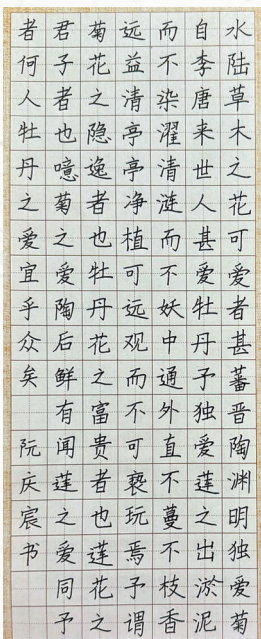 水陆草木之花可爱者甚蕃晋陶渊明独爱菊
自李唐来世人甚爱牡丹予独爱莲之出淤泥
而不染濯清涟而不妖中通外直不蔓不枝香
远益清亭亭净植可远观而不可亵玩焉予谓
菊花之隐逸者也牡丹花之富贵者也莲花之
君子者也噫菊之爱陶后鲜有闻莲之爱同予
者何人牡丹之爱宜乎众矣 阮庆宸书